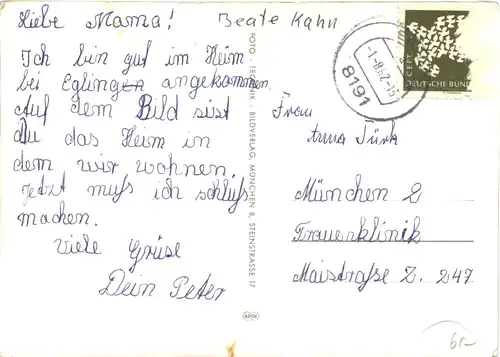 Liebe Mama!
Beate Kahn
Ich bin gut im Heim
bei Eglingen angekommen
Auf dem Bild sist
Du das Heim in
dem wir wohnen.
Jetzt muß ich schluß
machen.
Viele Grüse
Dein Peter
FOTO: TECHNIK, BILDVERLAG, MÜNCHEN 8, SEEINSTRASSE 17
ADOX
-1.-8.62.-15
8191
CEPT
DEUTSCHE BUND
Frau
Anna Türk
München 2
Frauenklinik
Maistraße Z. 247
6,-